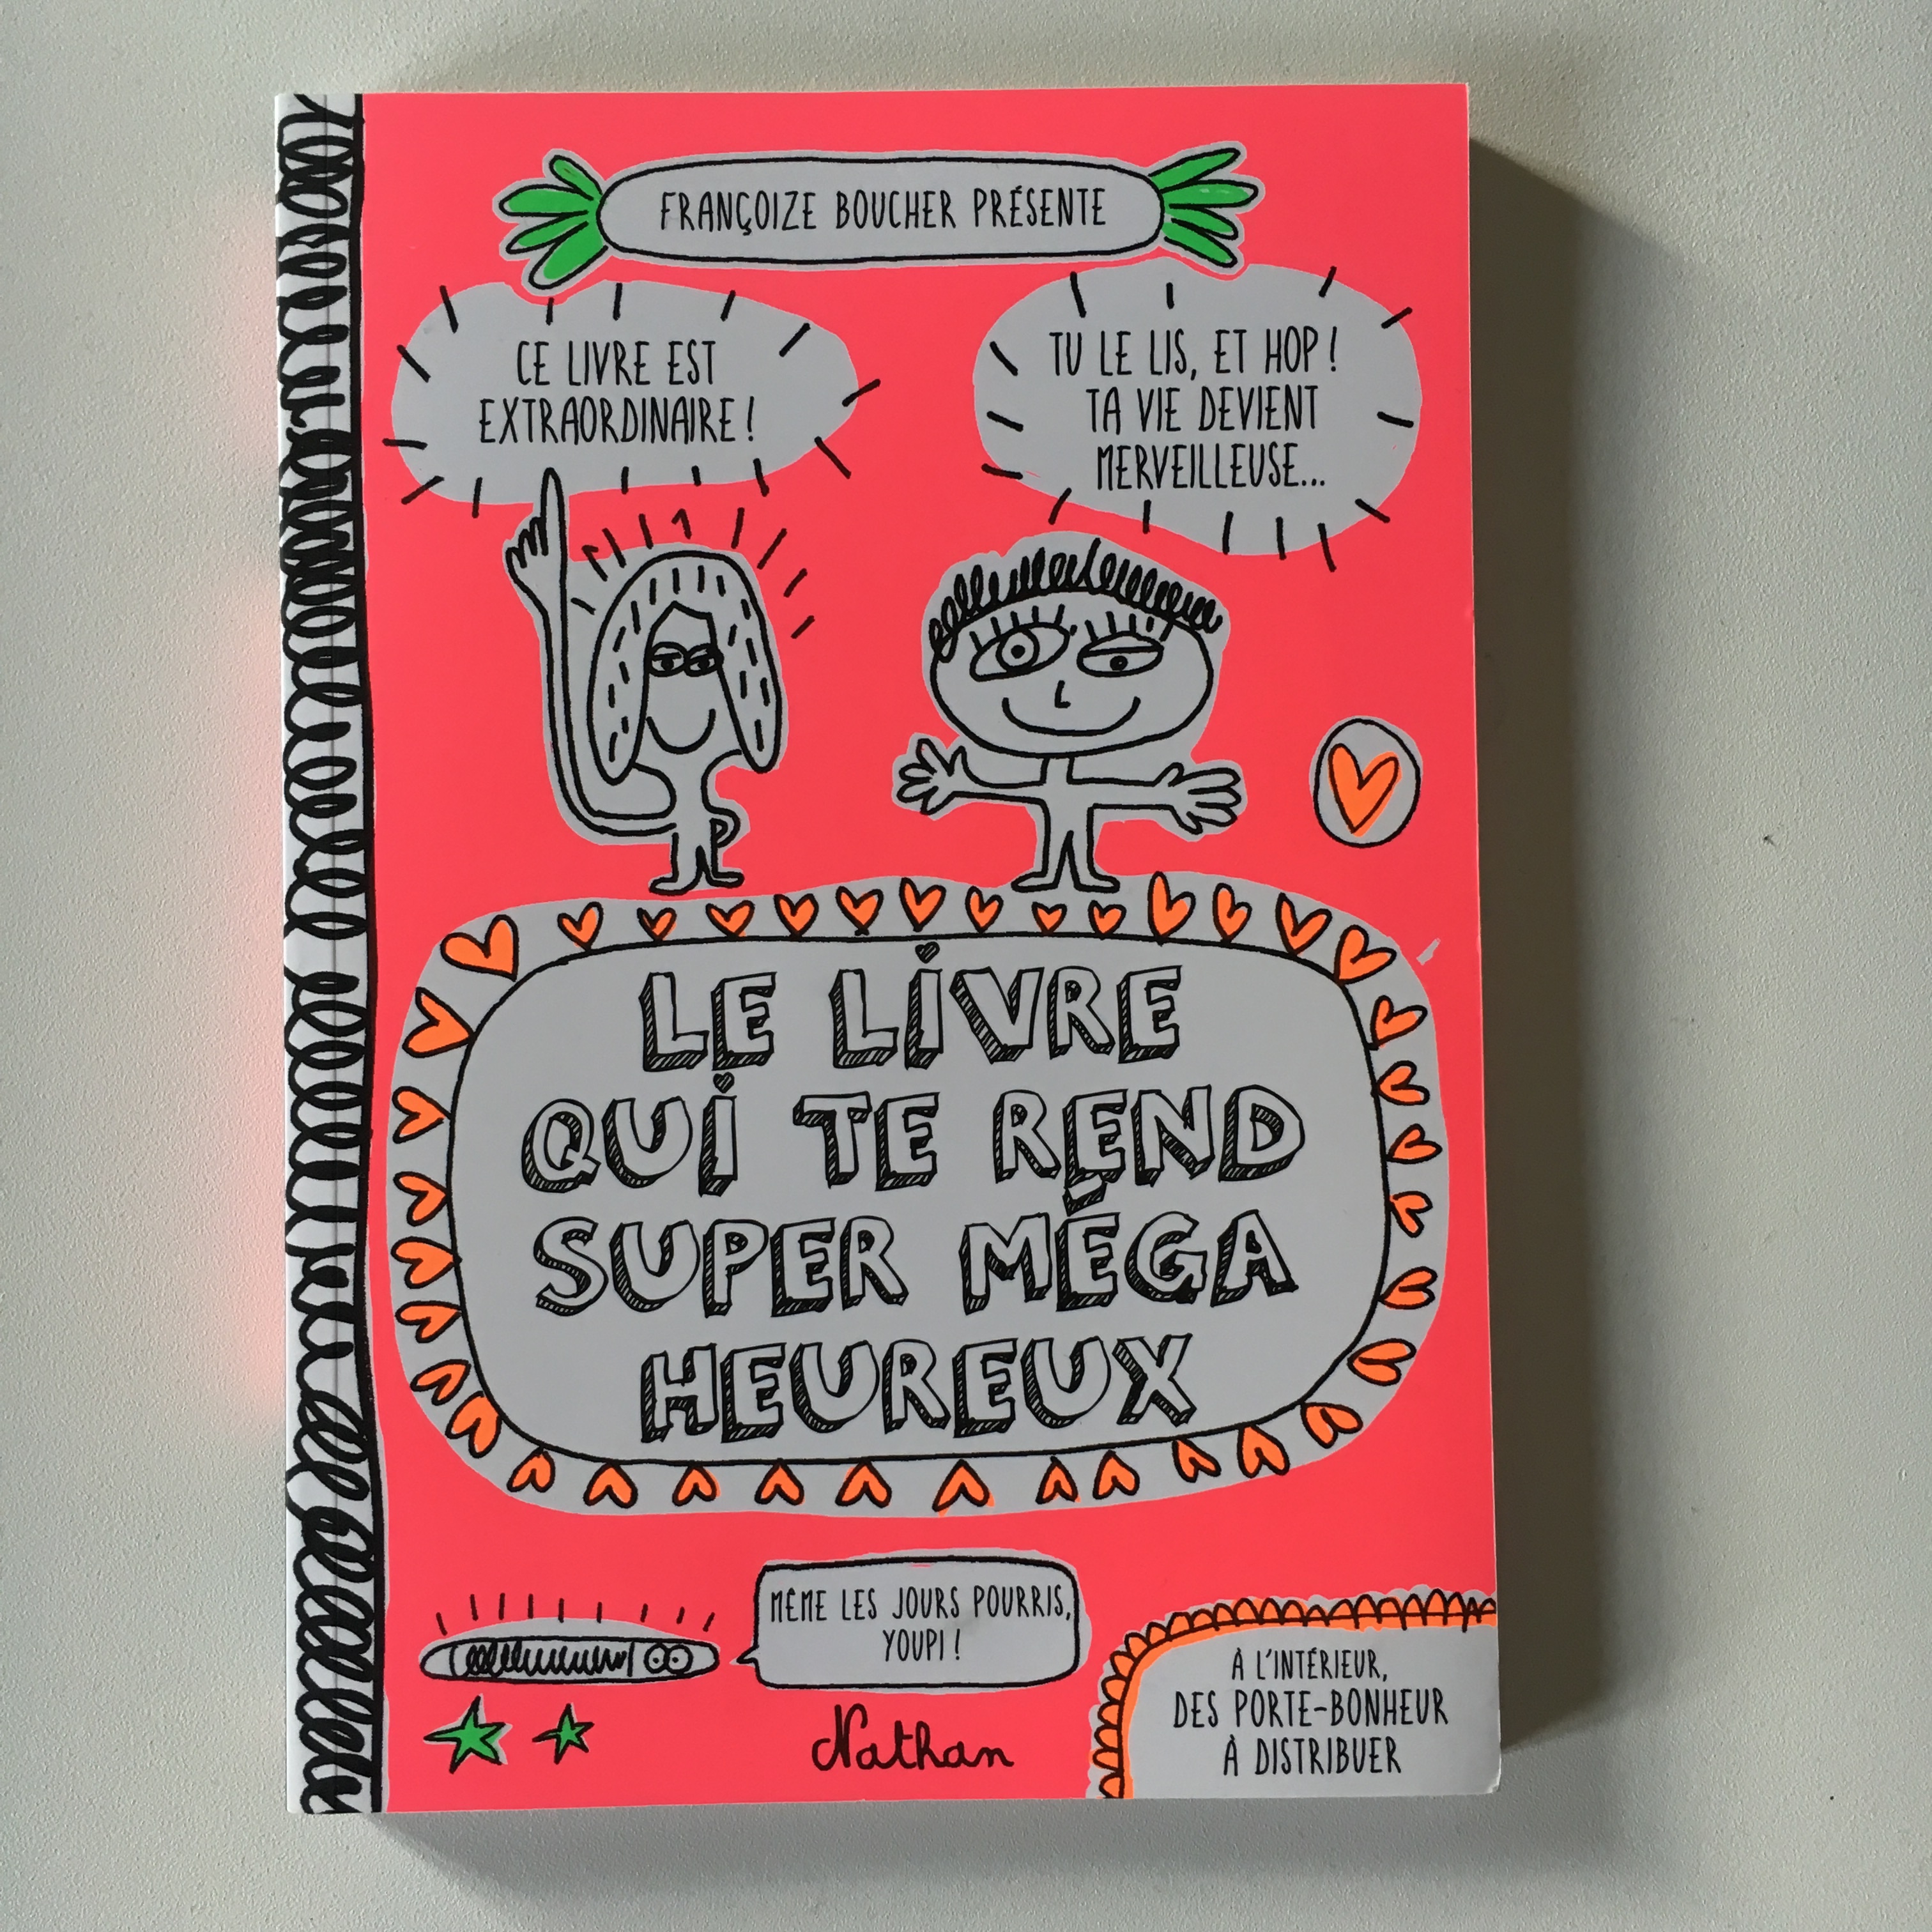 FRANÇOIZE BOUCHER PRÉSENTE
CE LIVRE EST
EXTRAORDINAIRE !
TU LE LIS, ET HOP !
TA VIE DEVIENT
MERVEILLEUSE...
LE LIVRE
QUI TE REND
SUPER MÉGA
HEUREUX
MÊME LES JOURS POURRIS,
YOUPI !
Nathan
À L'INTÉRIEUR,
DES PORTE-BONHEUR
À DISTRIBUER